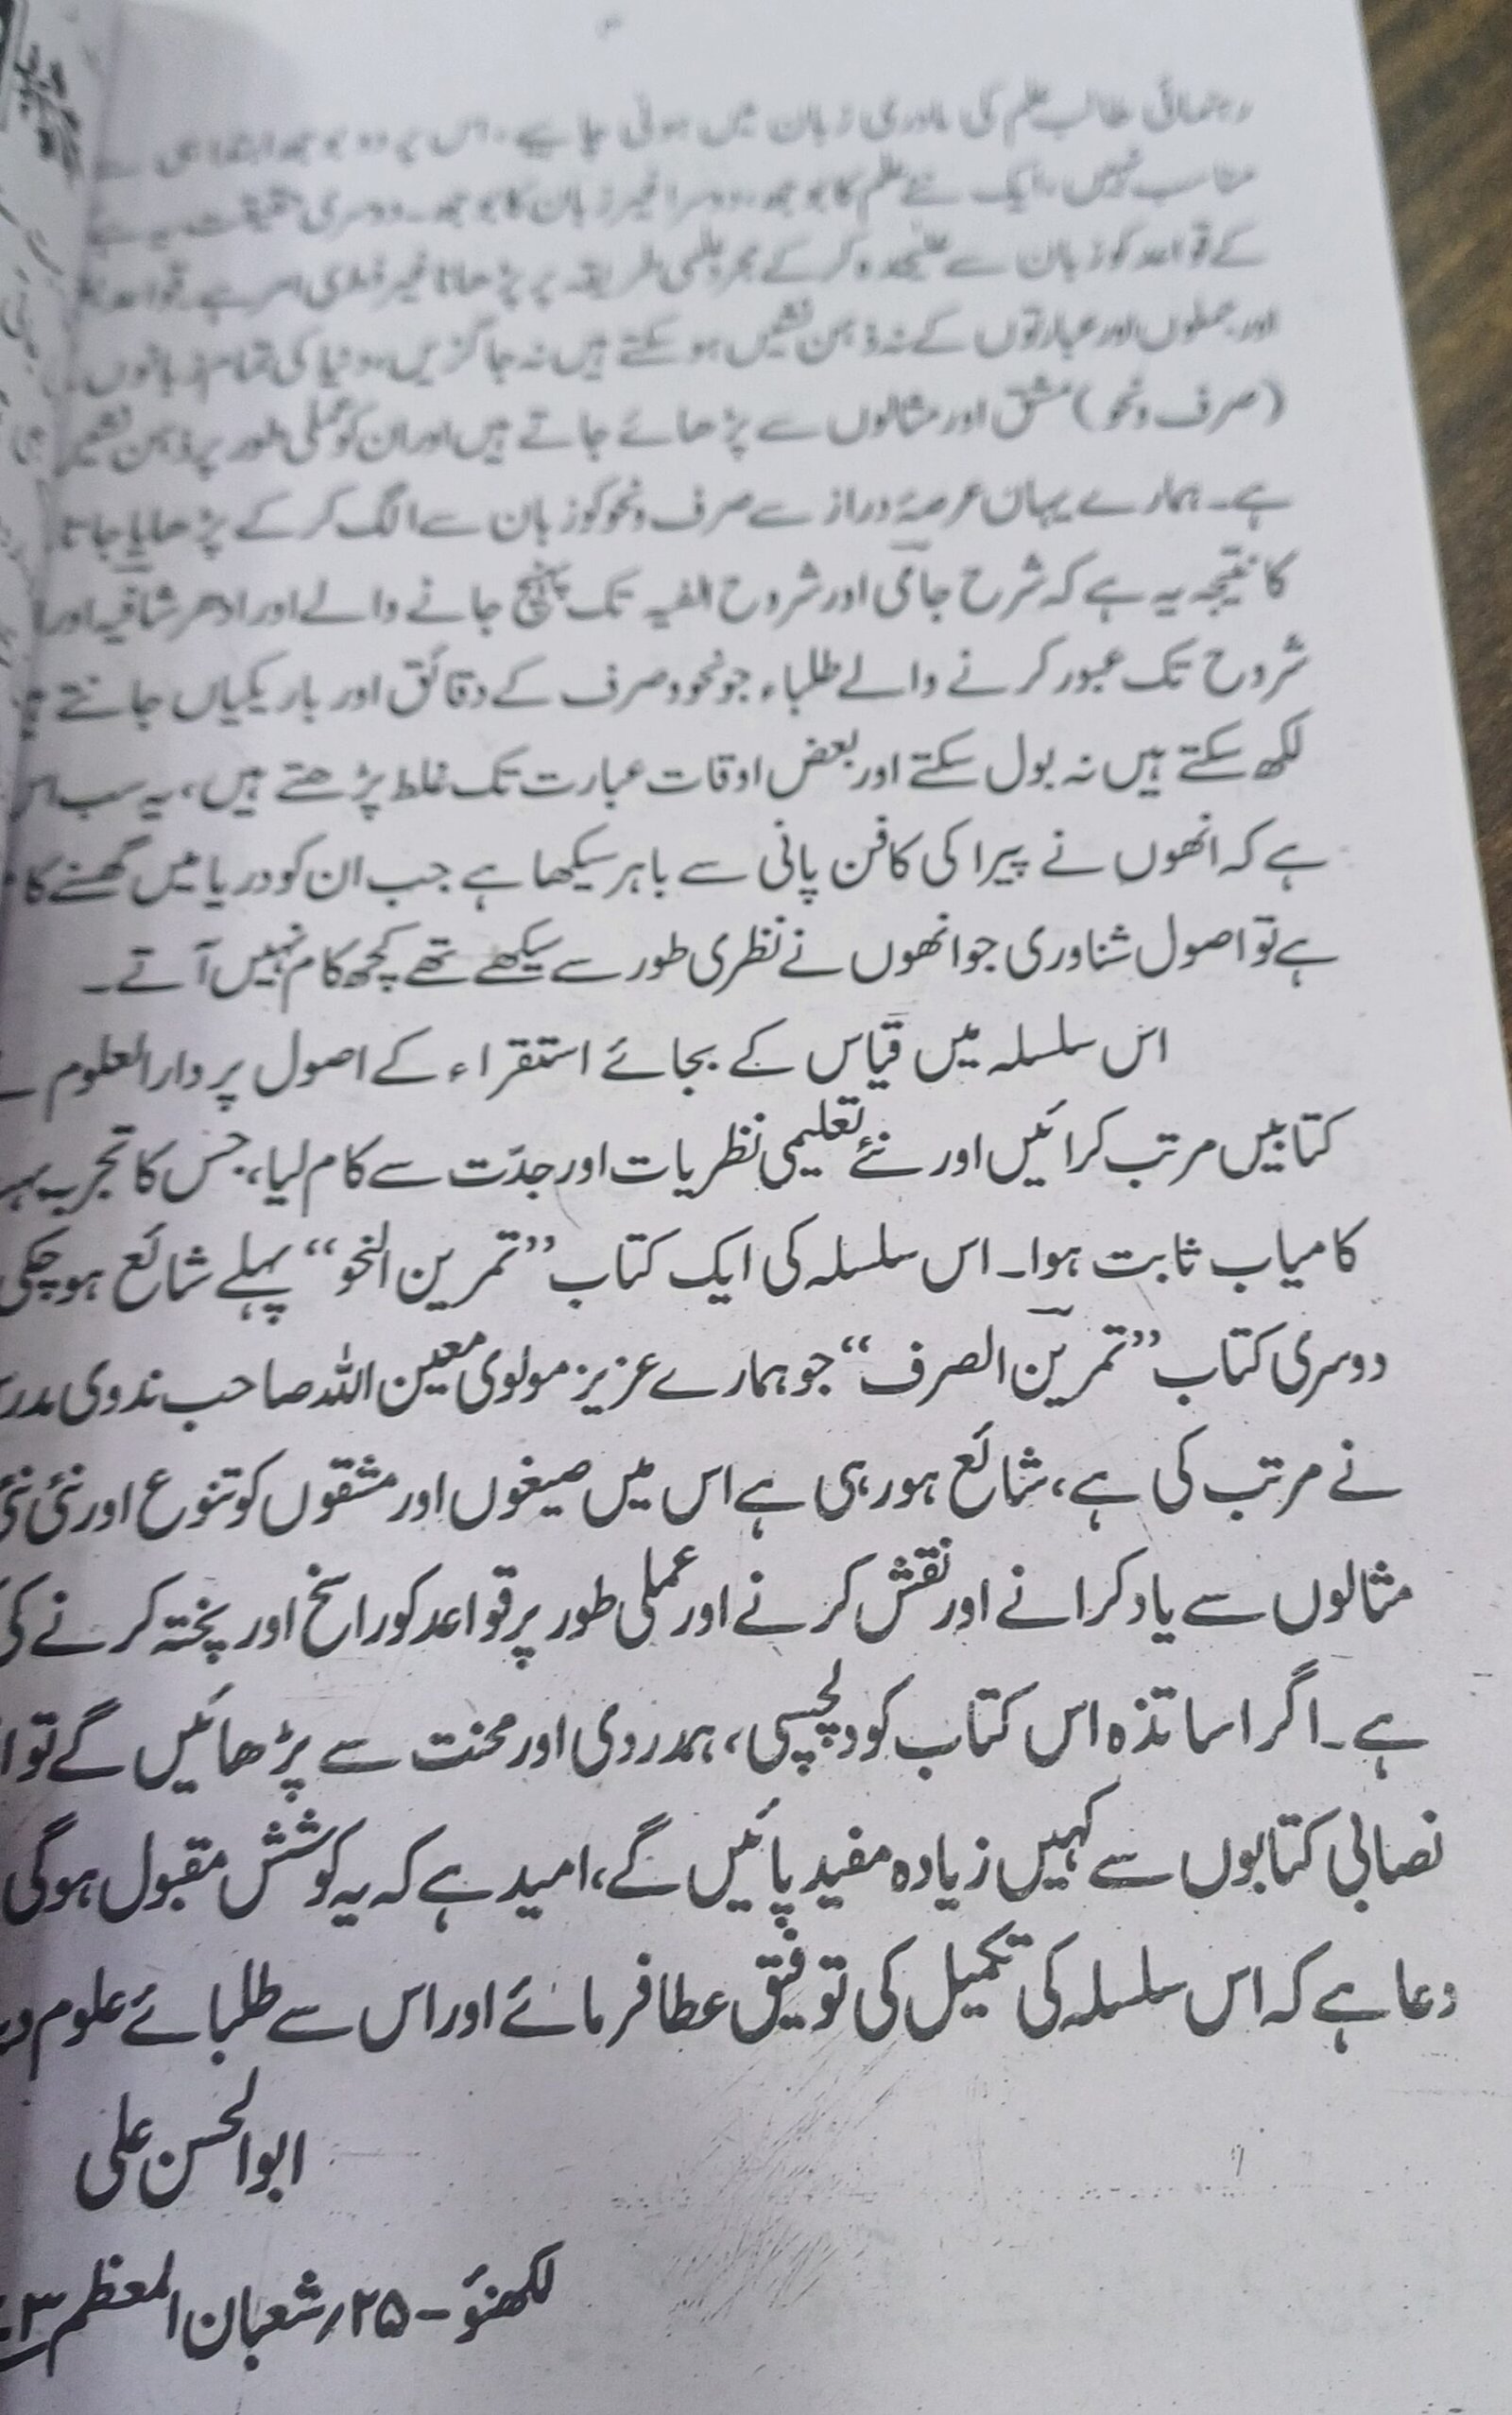 رہنمائی طالب علم کی مادری زبان میں ہونی چاہیے، اس پر دو بوجھ ابتدا ہی سے
مناسب نہیں، ایک نئے علم کا بوجھ، دوسرا غیر زبان کا بوجھ۔ دوسری حقیقت یہ ہے
کے قواعد کو زبان سے علیٰحدہ کر کے مجرد علمی طریقہ پر پڑھانا غیر فطری امر ہے۔ قواعد
اور جملوں اور عبارتوں کے نہ ذہن نشیں ہو سکتے ہیں نہ جاگزیں، دنیا کی تمام زبانوں
(صرف ونحو) مشق اور مثالوں سے پڑھائے جاتے ہیں اور ان کو عملی طور پر ذہن نشیں
ہے۔ ہمارے یہاں عرصۂ دراز سے صرف ونحو کو زبان سے الگ کر کے پڑھایا جاتا
کا نتیجہ یہ ہے کہ شرح جامی اور شروح الفیہ تک پہنچ جانے والے اور ادھر شافیہ اور
شروح تک عبور کرنے والے طلباء جو نحو وصرف کے دقائق اور باریکیاں جانتے
لکھ سکتے ہیں نہ بول سکتے اور بعض اوقات عبارت تک غلط پڑھتے ہیں، یہ سب اس
ہے کہ انھوں نے پیراکی کا فن پانی سے باہر سیکھا ہے جب ان کو دریا میں گھسنے کا
ہے تو اصول شناوری جو انھوں نے نظری طور سے سیکھے تھے کچھ کام نہیں آتے۔
اس سلسلہ میں قیاس کے بجائے استقراء کے اصول پر دارالعلوم
کتابیں مرتب کرائیں اور نئے تعلیمی نظریات اور جدّت سے کام لیا، جس کا تجربہ
کامیاب ثابت ہوا۔ اس سلسلہ کی ایک کتاب ”تمرین النحو“ پہلے شائع ہوچکی
دوسری کتاب ”تمرین الصرف“ جو ہمارے عزیز مولوی معین اللہ صاحب ندوی
نے مرتب کی ہے، شائع ہورہی ہے اس میں صیغوں اور مشقوں کو تنوع اور نئی نئی
مثالوں سے یاد کرانے اور نقش کرنے اور عملی طور پر قواعد کو راسخ اور پختہ کرنے کی
ہے۔ اگر اساتذہ اس کتاب کو دلچسپی، ہمدردی اور محنت سے پڑھائیں گے تو
نصابی کتابوں سے کہیں زیادہ مفید پائیں گے، امید ہے کہ یہ کوشش مقبول ہوگی
دعا ہے کہ اس سلسلہ کی تکمیل کی توفیق عطا فرمائے اور اس سے طلبائے علوم
ابوالحسن علی
لکھنؤ - ۲۵/شعبان المعظم